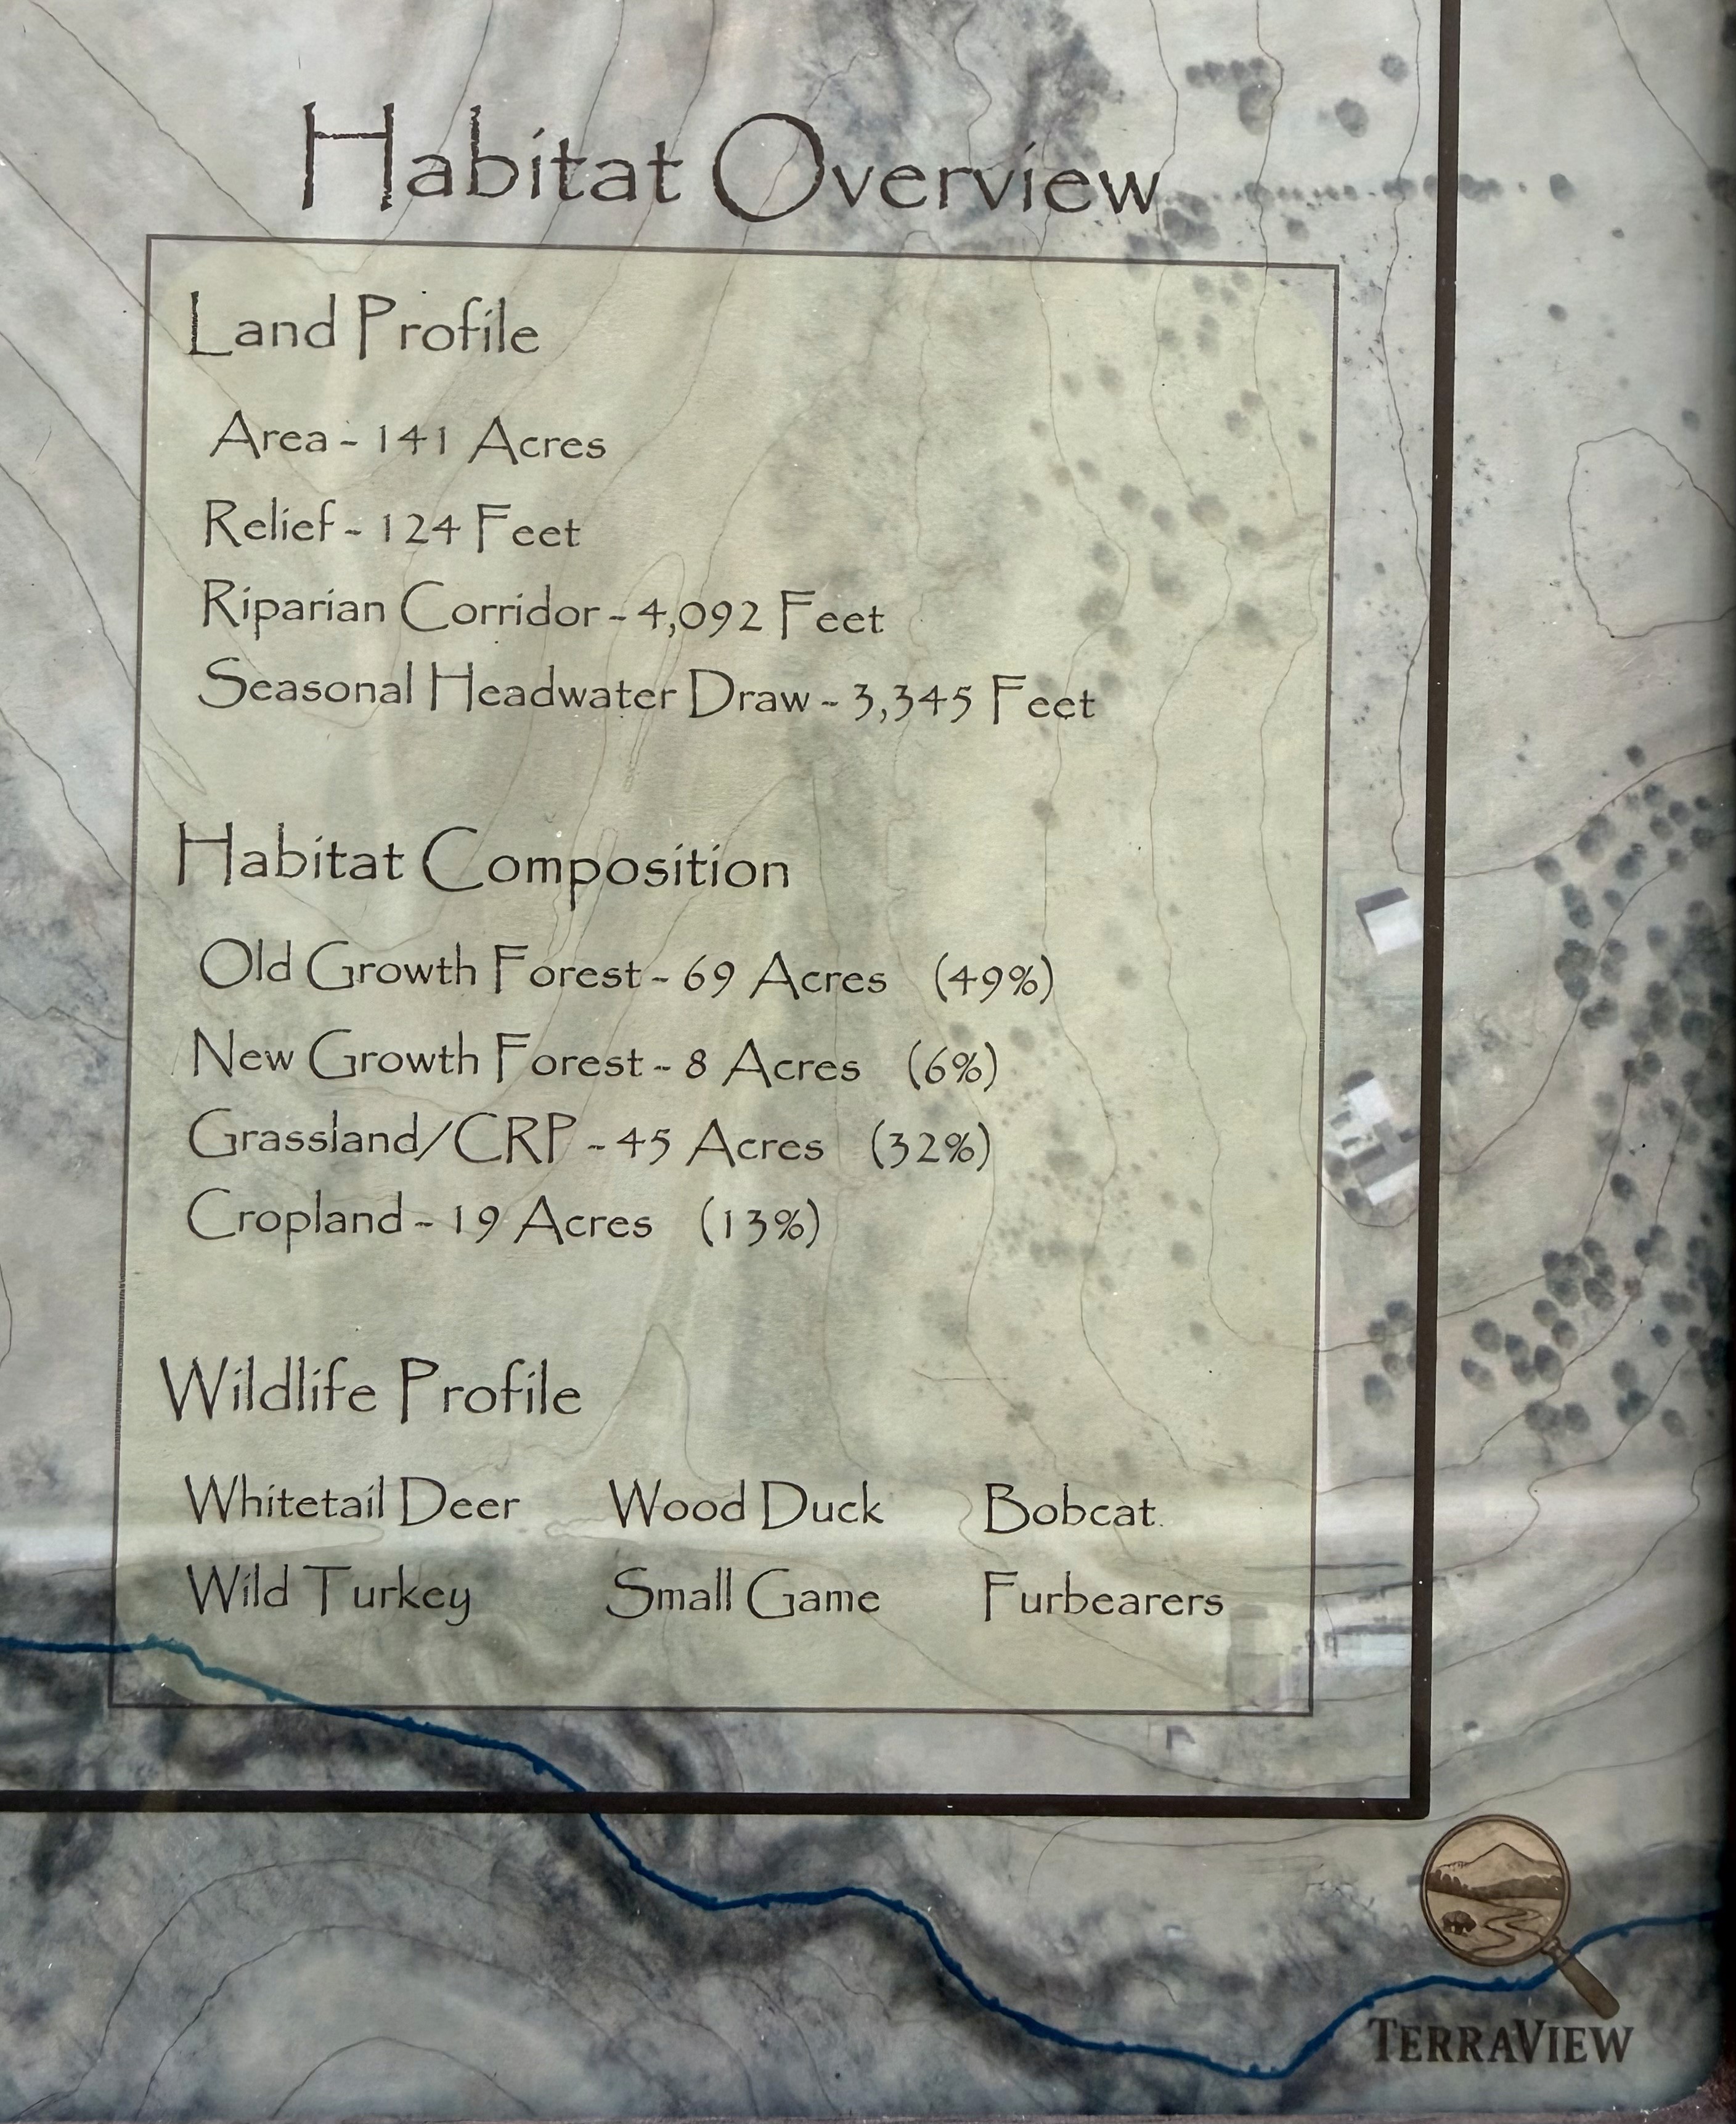 Habitat Overview
Land Profile
Area - 141 Acres
Relief - 124 Feet
Riparian Corridor - 4,092 Feet
Seasonal Headwater Draw - 3,345 Feet
Habitat Composition
Old Growth Forest - 69 Acres (49%)
New Growth Forest - 8 Acres (6%)
Grassland/CRP - 45 Acres (32%)
Cropland - 19 Acres (13%)
Wildlife Profile
Whitetail Deer Wood Duck Bobcat
Wild Turkey Small Game Furbearers
TERRAVIEW